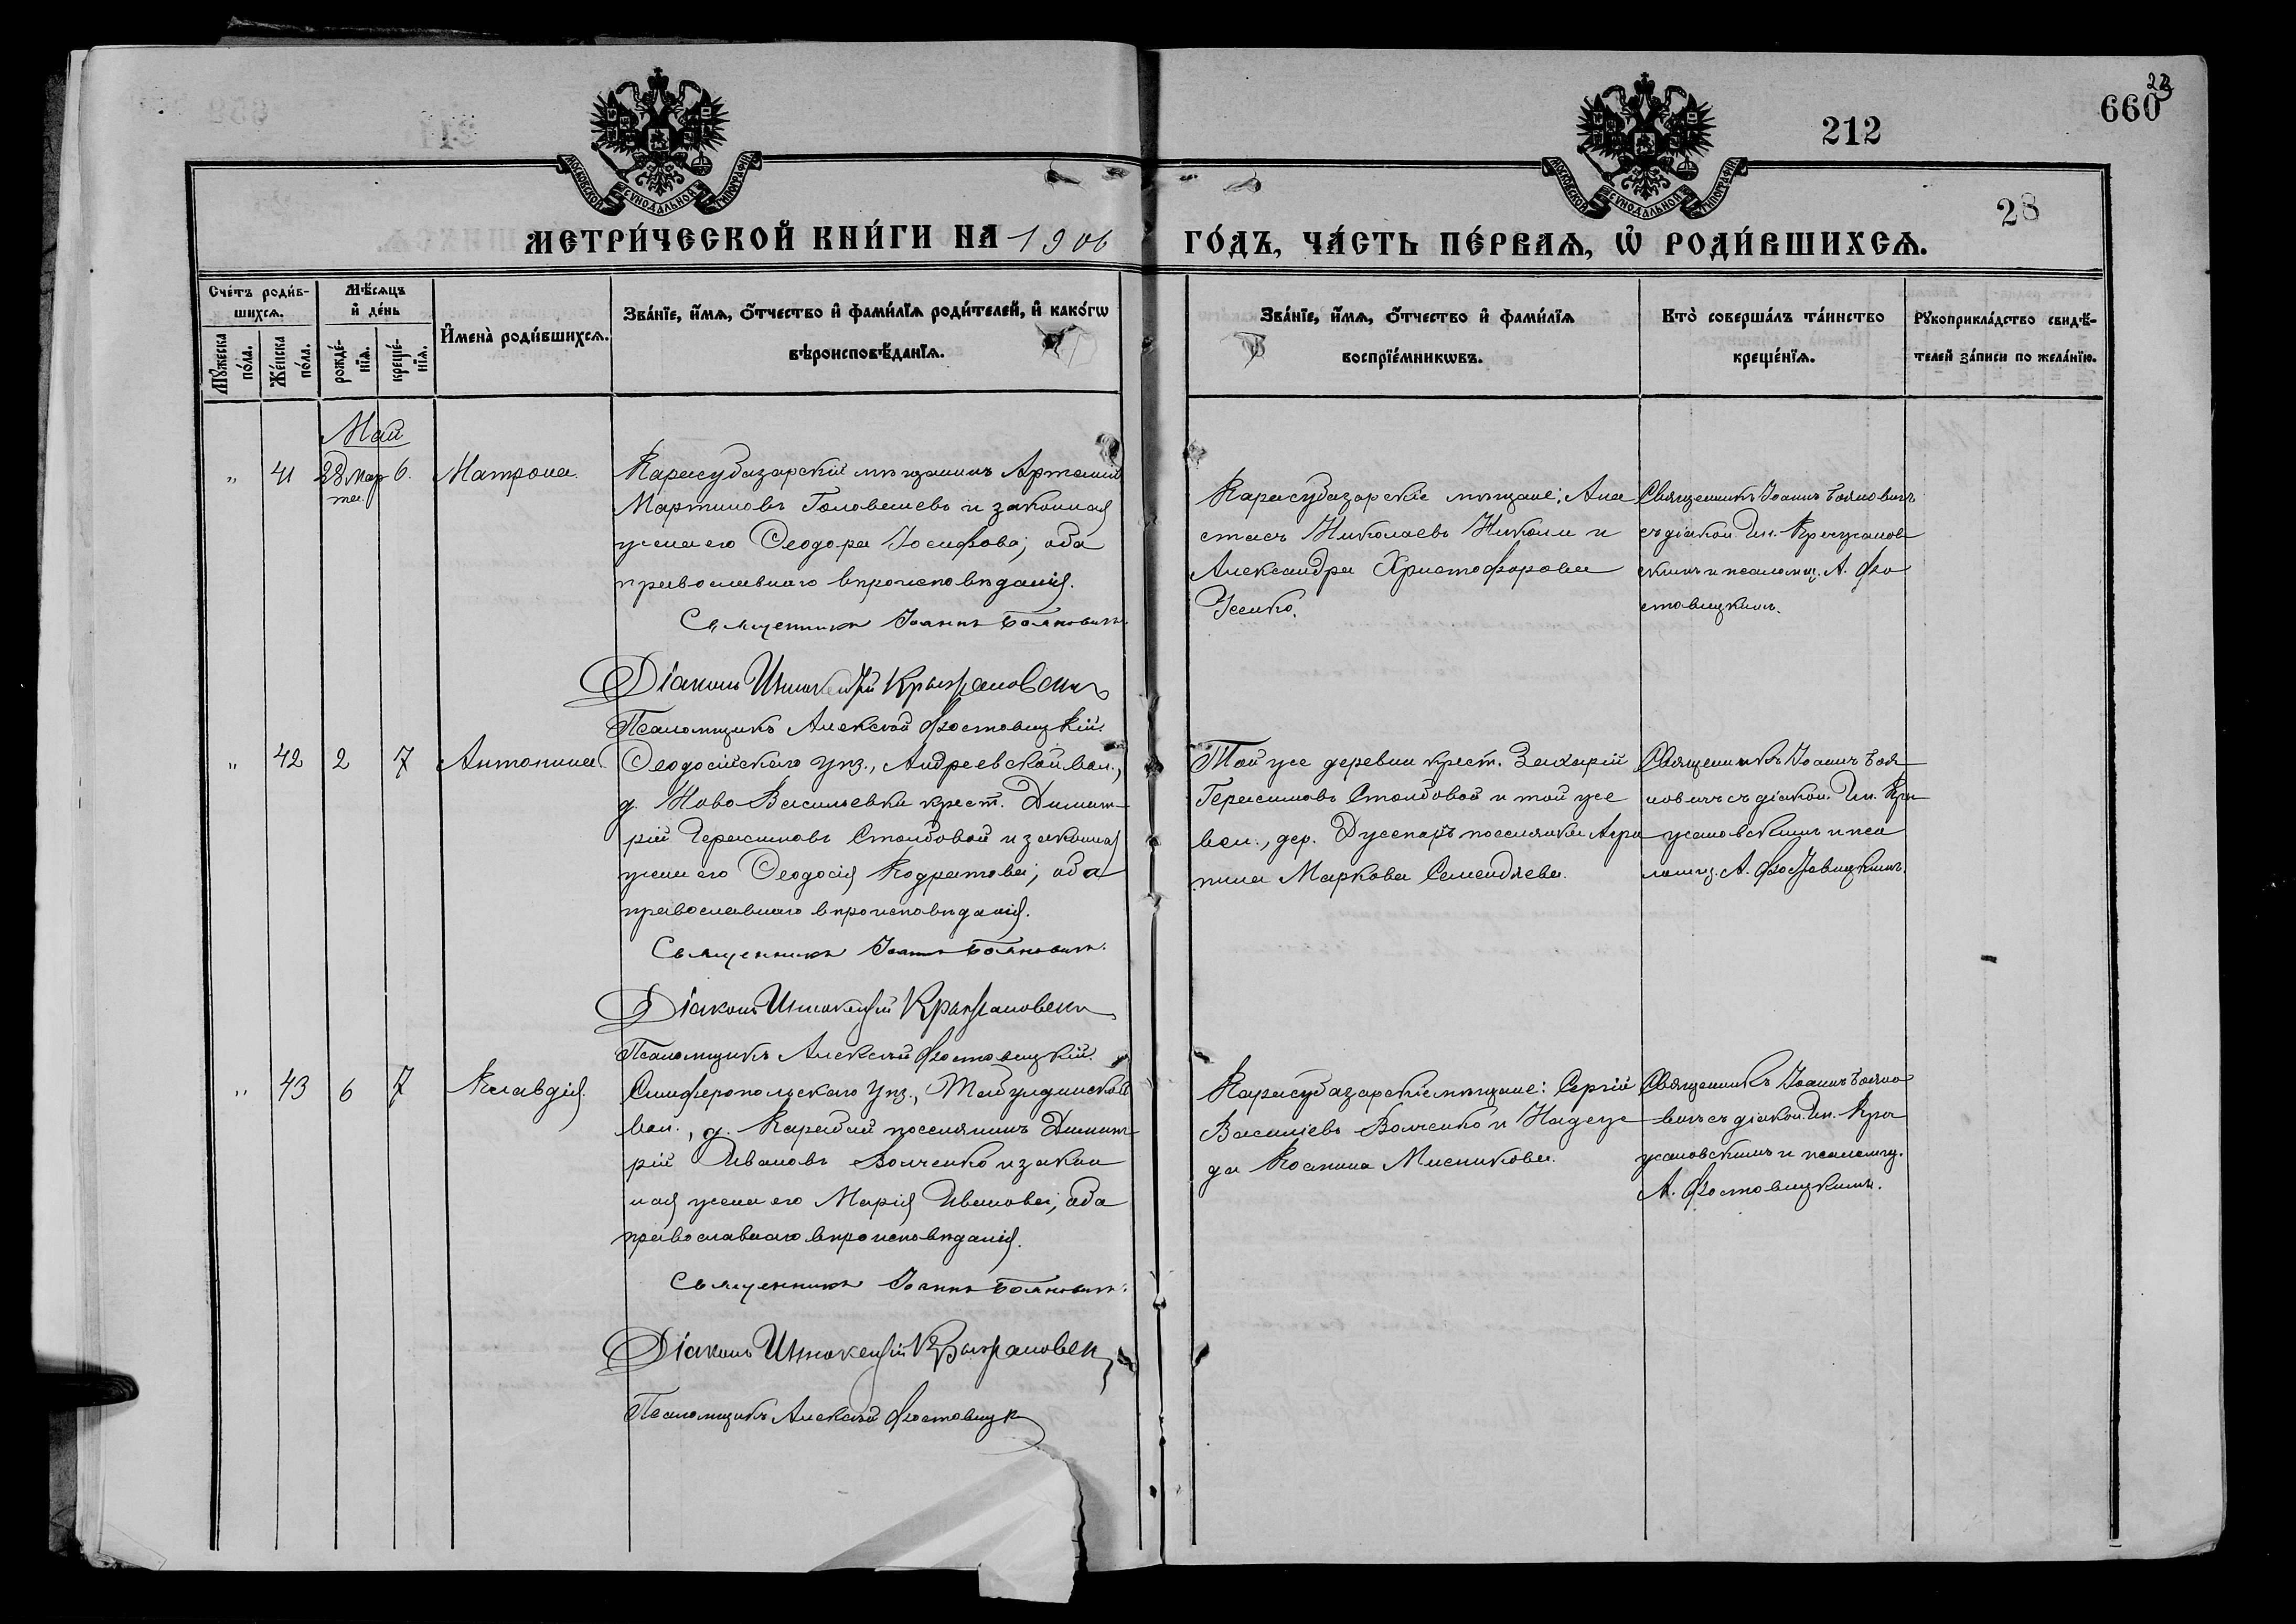 660
23
212
28
МОСКОВСКОЙ СѴНОДАЛЬНОЙ ТИПОГРАФІИ
МОСКОВСКОЙ СѴНОДАЛЬНОЙ ТИПОГРАФІИ
МЕТРИ́ЧЕСКОЙ КНИ́ГИ НА 1906
ГО́ДЪ, ЧА́СТЬ ПЕ́РВАѦ, Ѡ҆ РОДИ́ВШИХСѦ.
Сче́тъ роди́в-
шихсѧ.
Мꙋ́жеска по́ла.
Же́нска по́ла.
Мѣ́сѧцъ
и҆ де́нь
рожде́-
нїѧ.
креще́-
нїѧ.
И҆мена̀ роди́вшихсѧ.
Зва́нїе, и҆́мѧ, ѻ҆́тчество и҆ фами́лїѧ роди́телей, и҆ како́гѡ
вѣроисповѣ́данїѧ.
Зва́нїе, и҆́мѧ, ѻ҆́тчество и҆ фами́лїѧ
воспрїе́мникѡвъ.
Кто̀ соверша́лъ та́инство
креще́нїѧ.
Рꙋкоприкла́дство свидѣ́-
телей за́писи по жела́нїю.
Май
" 41 28 Мар-
та. 6. Матрона.
Карасубазарскій мѣщанинъ Артемій
Мартиновъ Головешевъ и законная
жена его Ѳеодора Іосифова; оба
православнаго вѣроисповѣданія.
Священникъ Іоаннъ Бояновичъ.
Діаконъ Иннокентій Крыжановскій
Псаломщикъ Алексѣй Ѳостовицкій.
Карасубазарскіе мѣщане: Ана
стасъ Николаевъ Николи и
Александра Христофорова
Усенко.
Священникъ Іоаннъ Бояновичъ
съ діакон. Ин. Крыжанов
скимъ и псаломщ. А. Ѳо
стовицкимъ.
" 42 2 7 Антонина.
Ѳеодосійскаго уѣз., Андреевской вол.,
д. Ново-Васильевки крест. Димит-
рій Герасимовъ Столбовой и законная
жена его Ѳеодосія Кодратова; оба
православнаго вѣроисповѣданія.
Священникъ Іоаннъ Бояновичъ.
Діаконъ Иннокентій Крыжановскій
Псаломщикъ Алексѣй Ѳостовицкій.
Той же деревни крест. Захарій
Герасимовъ Столбовой и той же
вол., дер. поселянка Агри
пина Маркова Семендяева.
Священникъ Іоаннъ Боя
новичъ съ діакон. Ин. Кры
жановскимъ и пса
ломщ. А. Ѳостовицкимъ.
" 43 6 7 Клавдія.
Симферопольскаго уѣз., Табулдинской
вол., д. Карабай поселянинъ Димит-
рій Ивановъ Волченко и закон
ная жена его Марія Иванова; оба
православнаго вѣроисповѣданія.
Священникъ Іоаннъ Бояновичъ.
Діаконъ Иннокентій Крыжановск
Псаломщикъ Алексѣй Ѳостовицк
Карасубазарскіе мѣщане: Сергій
Василіевъ Волченко и Надеж
да Мисникова.
Священникъ Іоаннъ Бояно
вичъ съ діакон. Ин. Кры
жановскимъ и псаломщ.
А. Ѳостовицкимъ.